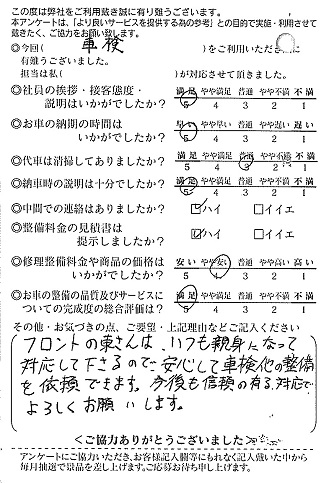 この度は弊社をご利用戴き誠に有り難うございます。
本アンケートは、「より良いサービスを提供する為の参考」との目的で実施・利用させて
戴きたく、ご協力をお願い致します。
◎今回( 車検 )をご利用いただき
有難うございました。
担当は私( )が対応させて頂きました。
◎社員の挨拶・接客態度・ 満足 やや満足 普通 やや不満 不満
説明はいかがでしたか? 5 4 3 2 1
◎お車の納期の時間は 早い やや早い 普通 やや遅い 遅い
いかがでしたか? 5 4 3 2 1
◎代車は清掃してありましたか? 満足 やや満足 普通 やや不満 不満
5 4 3 2 1
◎納車時の説明は十分でしたか? 満足 やや満足 普通 やや不満 不満
5 4 3 2 1
◎中間での連絡はありましたか? ☑ハイ □イイエ
◎整備料金の見積書は
提示しましたか? ☑ハイ □イイエ
◎修理整備料金や商品の価格は 安い やや安い 普通 やや高い 高い
いかがでしたか? 5 4 3 2 1
◎お車の整備の品質及びサービスに 満足 やや満足 普通 やや不満 不満
ついての完成度の総合評価は? 5 4 3 2 1
その他・お気づきの点、ご要望・上記理由などご記入ください
フロントの東さんは、いつも親身になって
対応して下さるので安心して車検他の整備
を依頼できます。今後も信頼の有る対応で
よろしくお願いします。
<ご協力ありがとうございました
アンケートにご協力いただき、お客様記入欄等にもれなく記入戴いた中から
毎月抽選で景品を差し上げます。ご応募お待ち申し上げます。